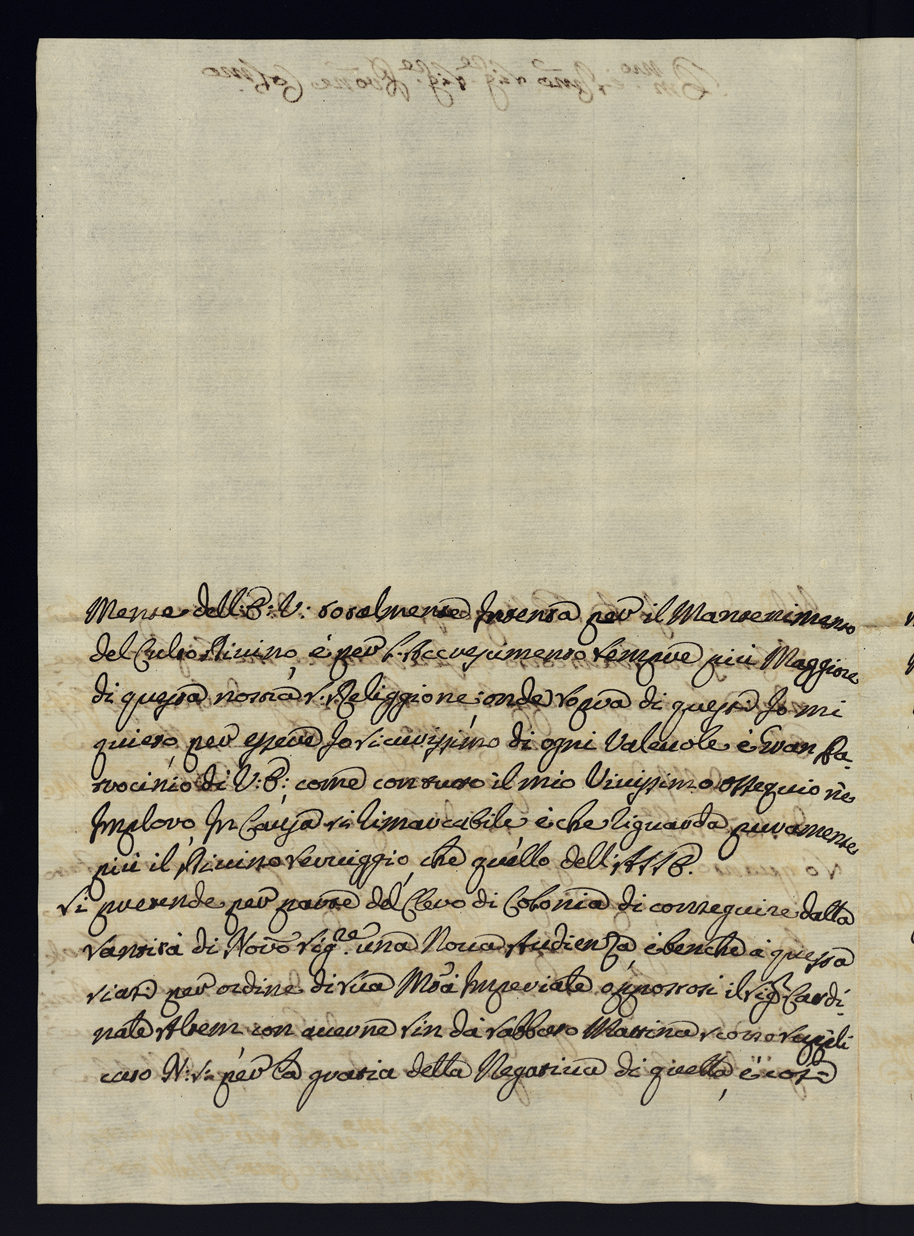 Mente dell: P: V: totalmente Intenta per il Mantenimento
del Culto Divino, e per l'Accrescimento sempre più Maggiore
di questa nostra S: Religgione: onde sopra di questo Io mi
quieto, per essere Io sicurissimo di ogni Valevole e Gran Pa-
trocinio di V: P:, come con tutto il mio Vivissimo ossequio ne
Imploro, In Causa si rimarcabile, e che riguarda puramente
più il Divino Serviggio, che quello dell:
Si pretende per parte del Clero di Colonia di conseguire dalla
Santità di Nostro Sig.re una Nova Audienza, e benche a questa
siasi per ordine di sua Mtà Imperiale oppostosi il Sig.r Cardi-
nale con averne sin da sabbato Mattina scorso suppli
cato N: S: per la grazia della Negativa di quella, è cosa